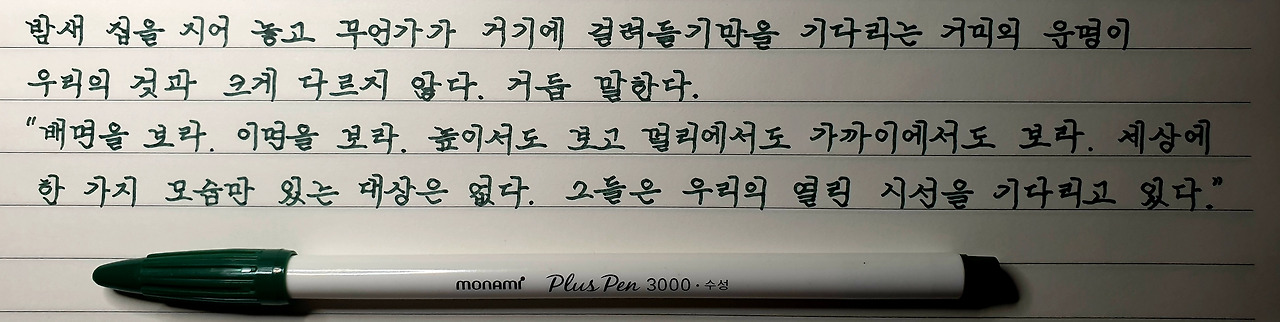 밤새 집을 지어 놓고 무언가가 거기에 걸려들기만을 기다리는 거미의 운명이
우리의 것과 크게 다르지 않다. 거듭 말한다.
"배면을 보라. 이면을 보라. 높이서도 보고 멀리에서도 가까이에서도 보라. 세상에
한 가지 모습만 있는 대상은 없다. 그들은 우리의 열린 시선을 기다리고 있다."
monami Plus Pen 3000 · 수성